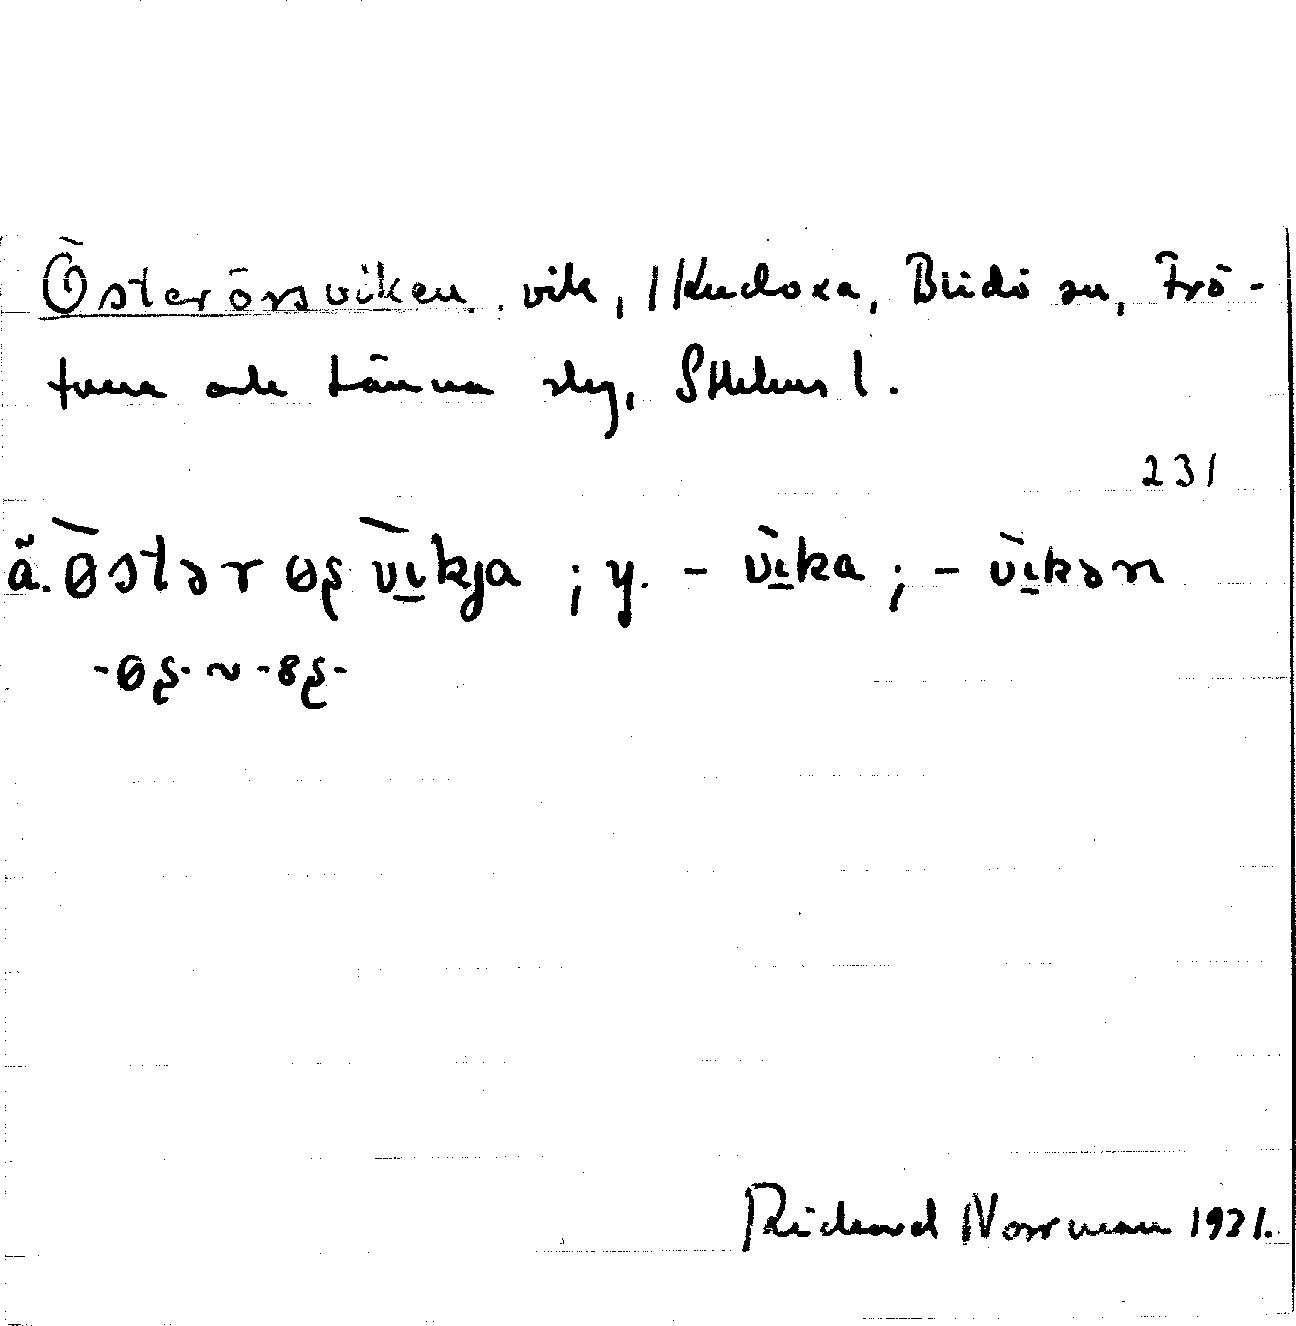 Österörsviken. vik, Kudoxa, Blidö sn, Frö-
tuna och Länna slg, Sthlms l.
231
ä. østər øʂ vi̲kja ; y. - vi̲ka ; - vi̲kən
-øʂ- ~ -8ʂ-
Richard Norrman 1931.